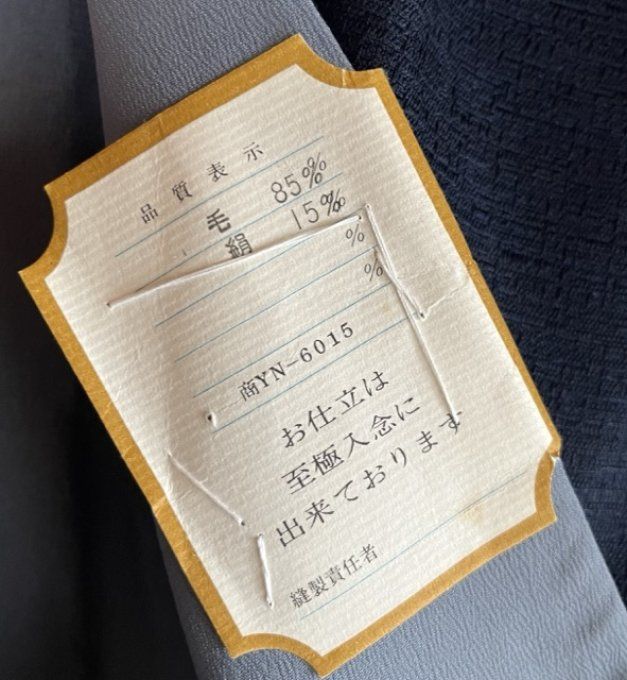 品質表示
毛 85%
絹 15%
%
%
商YN-6015
お仕立は
至極入念に
出来ております
縫製責任者